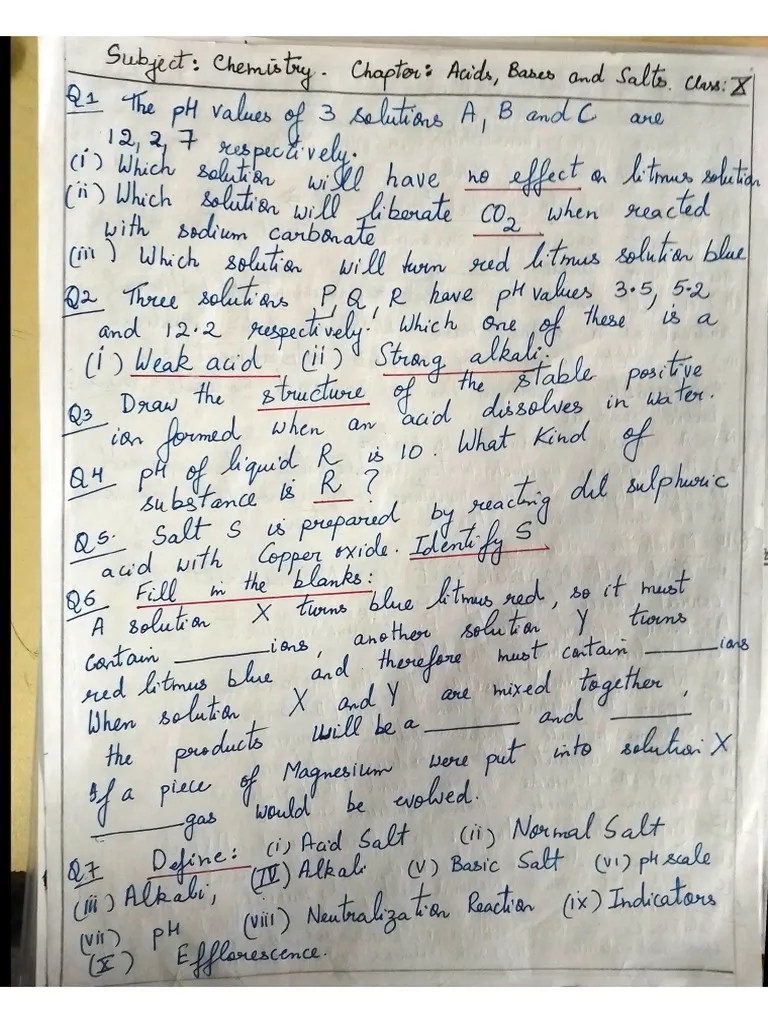 Subject: Chemistry. Chapter: Acids, Bases and Salts. Class: X
Q1 The pH values of 3 solutions A, B and C are
12, 2, 7 respectively.
(i) Which solution will have no effect on litmus solution
(ii) Which solution will liberate CO2 when reacted
with sodium carbonate
(iii) Which solution will turn red litmus solution blue
Q2 Three solutions P, Q, R have pH values 3.5, 5.2
and 12.2 respectively. Which one of these is a
(i) Weak acid (ii) Strong alkali.
Q3 Draw the structure of the stable positive
ion formed when an acid dissolves in water.
Q4 pH of liquid R is 10. What Kind of
substance is R ?
Q5. Salt S is prepared by reacting dil sulphuric
acid with Copper oxide. Identify S
Q6 Fill in the blanks:
A solution X turns blue litmus red, so it must
contain ______ ions, another solution Y turns
red litmus blue and therefore must contain ______ ions
When solution X and Y are mixed together,
the products will be a ______ and ______
If a piece of Magnesium were put into solution X
______ gas would be evolved.
Q7 Define: (i) Acid Salt (ii) Normal Salt
(iii) Alkali, (IV) Alkali (V) Basic Salt (VI) pH scale
(vii) pH (viii) Neutralization Reaction (ix) Indicators
(X) Efflorescence.